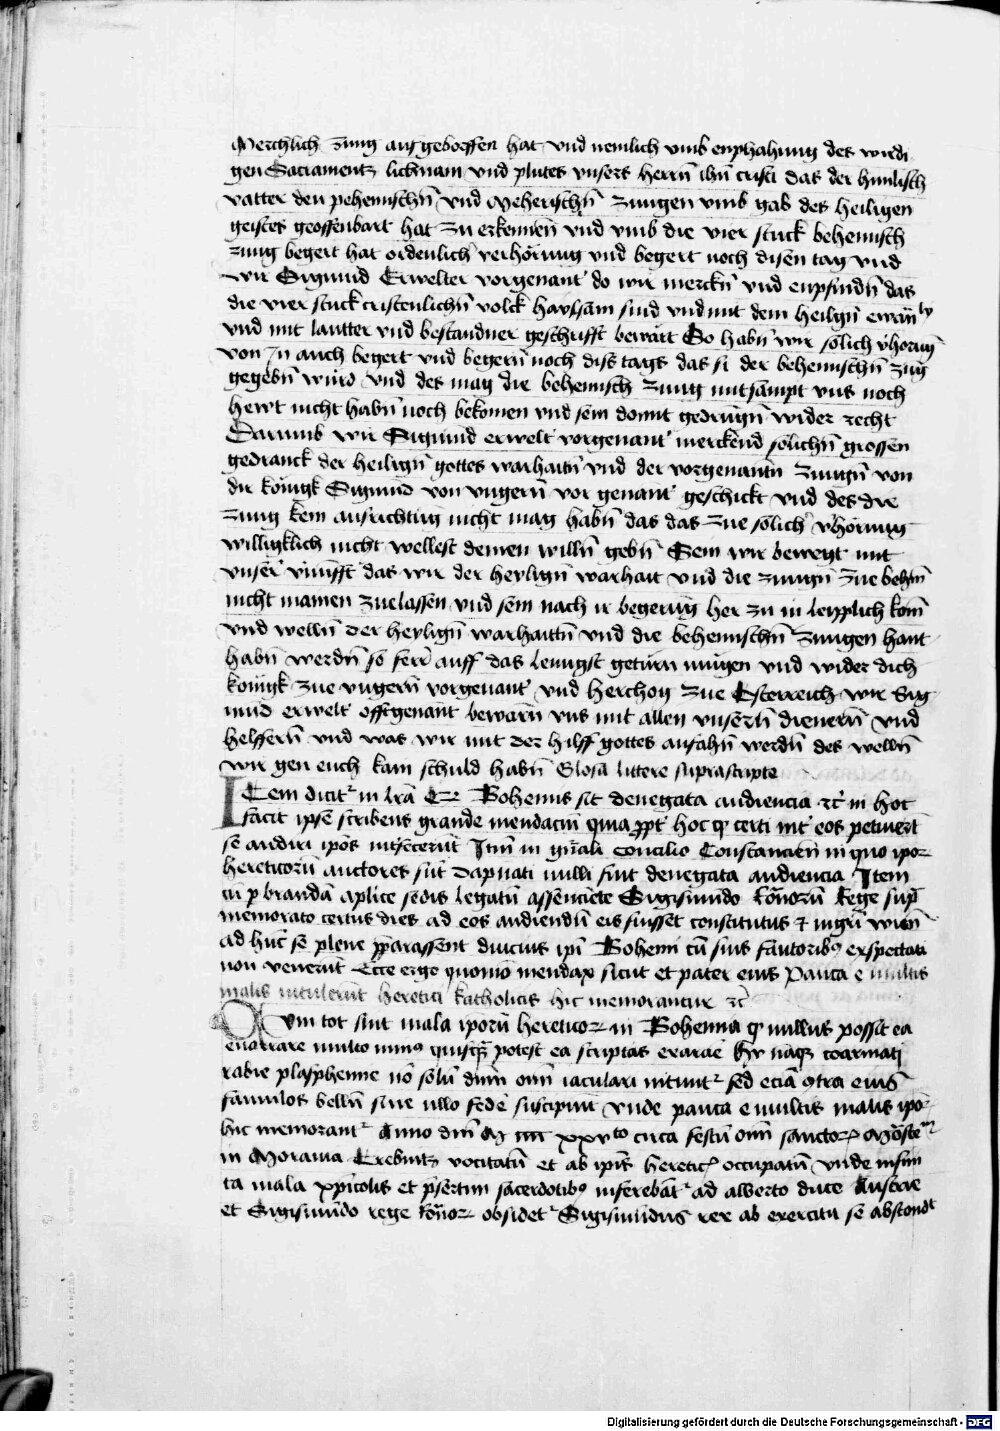 Merchlich zung aufgeboffen hat vnd nemlich vmb enphahung des wirdi
gen Sacramentz lichnam vnd plutes vnsers herrn ihū cristi das der himlisch
vatter den pehemischn̄ vnd Meherischn̄ zungen vmb gab des heiligen
geistes geoffenbart hat zu erkennen vnd vmb die vier stuck behemisch
zung begert hat ordenlich verhörung vnd begert noch disen tag vnd
wir Sigmund Erwelter vorgenant do wir merckn̄ vnd enpfindn̄ das
die vier stuck cristenlichn̄ volck haylsam sind vnd mit dem heilign̄ ewan̄ly
vnd mit lautter vnd bestandner geschrifft bewart So habn̄ wir solich v̄horung
von in auch begert vnd begern̄ noch dis tags das si der behemischn̄ zūg
gegebn̄ würd vnd des mag die behemisch zung mitsampt vns noch
hewt nicht habn̄ noch bekomen vnd sein domit gedrūgn̄ wider recht
Darumb wir Sigmund erwelt vorgenant merckend solichn̄ grossen
gedranck der heilign̄ gottes warhaitn̄ vnd der vorgenantn̄ zungn̄ von
dir kōnigk Sigmund von vngern̄ vor genant geschickt vnd des die
zung kein ausrichtūg nicht mag habn̄ das das zue solich v̄hörung
williglich nicht wellest deinen willn̄ gebn̄ Sein wir bewegt mit
vnser vnūfft das wir der heylign̄ warhait vnd die zungn̄ zue behm̄
nicht mainen zuelassen vnd sein nach ir begerūg her zu in leyplich kom̄
vnd welln̄ der heylign̄ warhaittn̄ vnd die behemischn̄ zungen hant
habn̄ werdn̄ so ferr auff das lengst geturn mügen vnd wider dich
königk zue vngern̄ vorgenant vnd herczog zue Osterreich wir Sig
mūd erwelt offtgenant bewarn̄ vns mit allen vnsern̄ dienern̄ vnd
helffern̄ vnd was wir mit der hilff gottes anfahn̄ werdn̄ des welln̄
wir gen euch kain schuld habn̄ Glosa littere suprascripte
Item dicit᷑ in lr̄a Et Bohemis sit denegata audiencia ꝛc̄ in hoc
facit ipse scribens grande mendaciū quia ꝓpt᷑ hoc ꝙ certi int᷑ eos petiuert̄
se audiri ip̄os int᷑fecerūt Itm̄ in gn̄ali concilio Constancien̄ in quo ipoꝝ
hereticorū auctores sūt dapnati nulli sint denegata audiencia Item
cū ꝑ brandā ap̄lice sedis legatū assenciente Sigismundo Ro͂norū Rege sup̄
memorato certus dies ad eos audiendū eis fuisset constitutus ⁊ in
ad hūc se plene p̄parassent diucius ip̄i Bohemi cū suis fautoribꝰ exspectati
non venerūt Ecce ergo quomō mendax sicut et pater eius Pauca e multis
malis intulerūt heretici katholicis hic memorantur ꝛc̄
Qvm tot sint mala ipōrū hereticoꝝ in Bohemia ꝙ nullus possit ea
enarrare multo minꝰ quisq̄ potest ea scriptas exarare Hy nāqꝫ coarmati
rabie plasphemie nō solū dm̄m om̄m iaculari nitunt᷑ sed eciā ꝯtra eius
famulos bellū sine vllo fedē suscipiūt vnde pauca e multis malis ipoꝝ
hic memorant᷑ Anno dm̄ M iiii xxv̊to circa festū om̄m sanctoꝝ
in Morauia Trebnitz vocitatū et ab ipīs hereticꝭ occupatū vnde infini
ta mala xp̄icolis et p̄sertim sacerdotibꝰ inferebāt᷑ ad alberto duce Austrie
et Sigismūdo rege Ro͂noꝝ obsidet᷑ Sigismūdus rex ab exercitu se abscondt
Digitalisierung gefördert durch die Deutsche Forschungsgemeinschaft - DFG